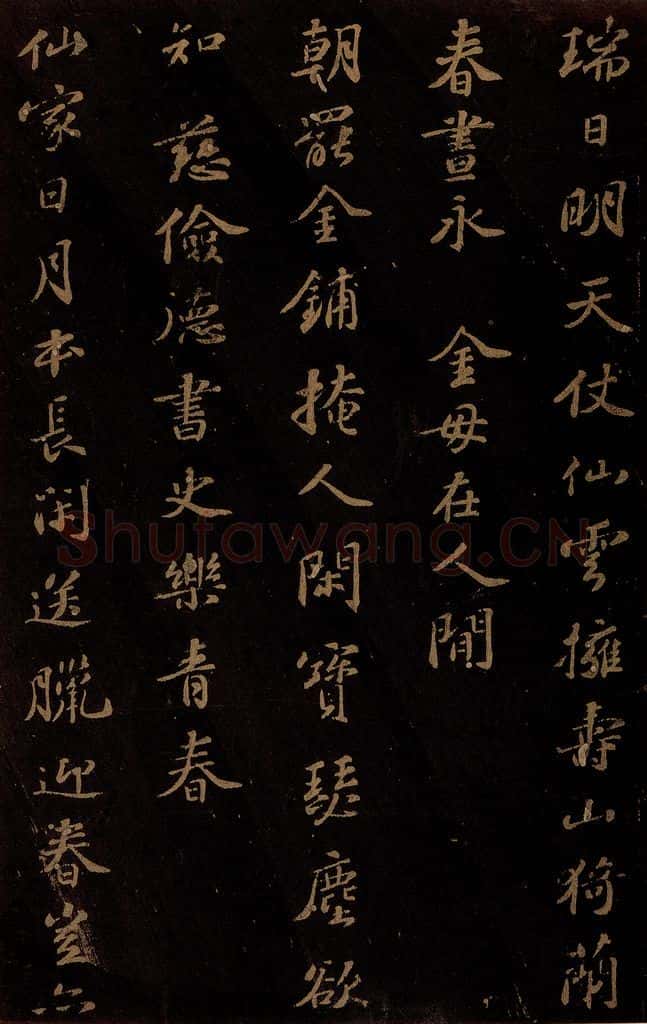 瑞日明天仗仙雲擁壽山猗蘭
春晝永 金母在人間
朝罷金鋪掩人閑寶瑟塵欲
知慈儉德書史樂青春
仙家日月本長閑送臘迎春豈亦
Shufawang.CN